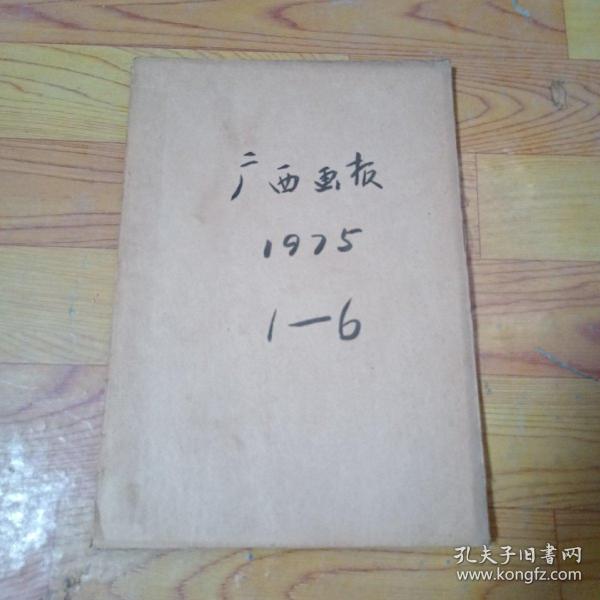 广西画报
1975
1—6
孔夫子旧书网
www.kongfz.com